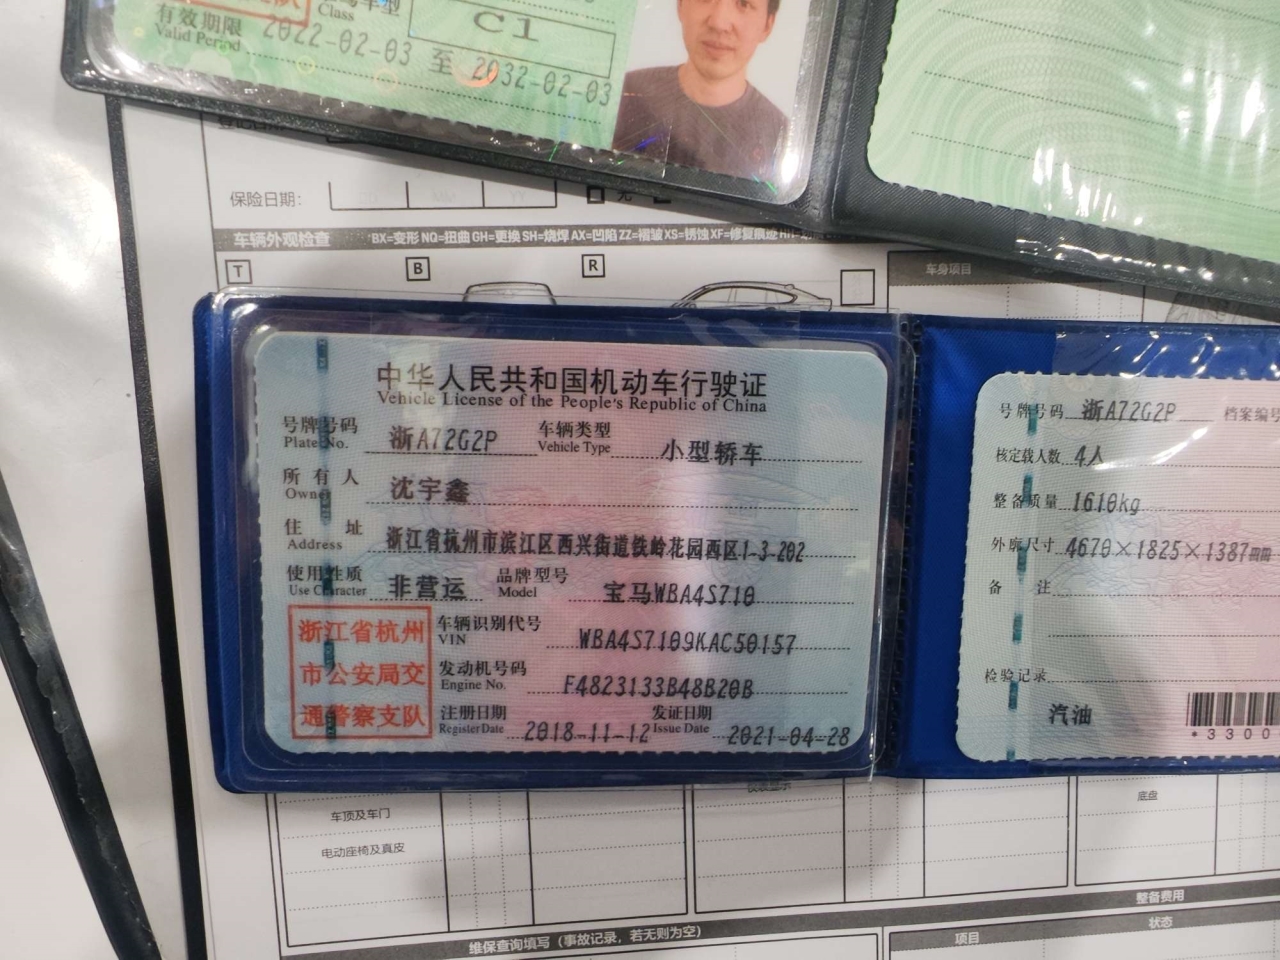 Class
C1
有效期限
Valid Period
2022-02-03 至 2032-02-03
保险日期:
车辆外观检查
BX=变形 NQ=扭曲 GH=更换 SH=烧焊 AX=凹陷 ZZ=褶皱 XS=锈蚀 XF=修复痕迹
T
B
R
车身项目
中华人民共和国机动车行驶证
Vehicle License of the People's Republic of China
号牌号码 浙A72G2P 车辆类型 小型轿车
Plate No. Vehicle Type
所有人 沈宇鑫
Owner
住址 浙江省杭州市滨江区西兴街道铁岭花园西区1-3-202
Address
使用性质 非营运 品牌型号 宝马WBA4S710
Use Character Model
浙江省杭州
市公安局交
通警察支队
车辆识别代号 WBA4S7109KAC50157
VIN
发动机号码 F4823133B48B20B
Engine No.
注册日期 2018-11-12 发证日期 2021-04-28
Register Date Issue Date
号牌号码 浙A72G2P 档案编号
核定载人数 4人
整备质量 1610kg
外廓尺寸 4670×1825×1387mm
备注
检验记录
汽油
*3300
车顶及车门
电动座椅及真皮
底盘
整备费用
维保查询填写（事故记录，若无则为空）
项目
状态